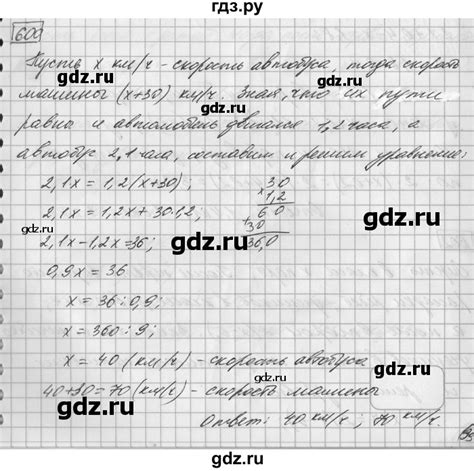 гдз.ру
600
Пусть x км/ч - скорость автобуса, тогда скорость
машины (x+30) км/ч. Зная, что их пути
равны и автомобиль двигался 1,2 часа, а
автобус 2,1 часа, составим и решим уравнение:
2,1x = 1,2(x+30);
2,1x = 1,2x + 30·1,2;
2,1x - 1,2x = 36;
0,9x = 36
x = 36 : 0,9;
x = 360 : 9;
x = 40 (км/ч) - скорость автобуса
40+30 = 70 (км/ч) - скорость машины
Ответ: 40 км/ч; 70 км/ч
30
× 1,2
60
+ 30
36,0
gdz.ru
gdz.ru
gdz.ru
gdz.ru
gdz.ru
gdz.ru
gdz.ru
gdz.ru